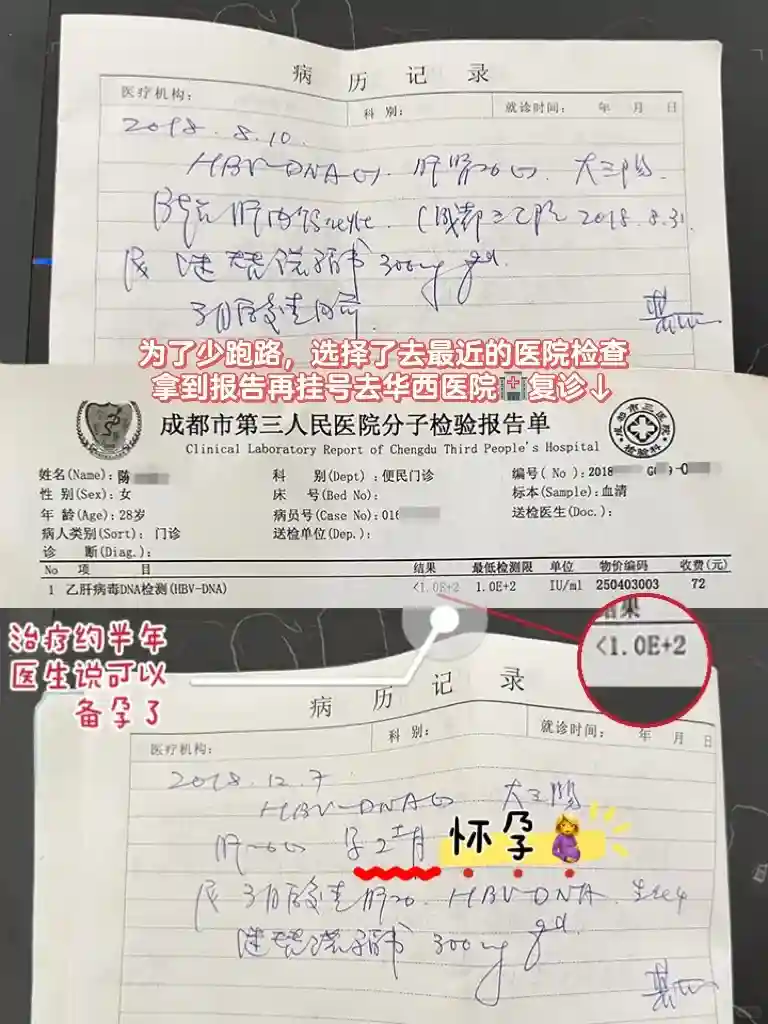 病 历 记 录
医疗机构:
科 别:
就诊时间: 年 月 日
2018.8.10
HBV-DNA(-) 大三阳.
(成都三医院 2018.8.3).
300mg qd.
为了少跑路，选择了去最近的医院检查
拿到报告再挂号去华西医院🏥复诊↓
成都市第三人民医院分子检验报告单
Clinical Laboratory Report of Chengdu Third People's Hospital
成都市三医院
检验科
姓名(Name): 陈
科 别(Dept) :便民门诊
编号( No ):2018 G 9-0
性 别(Sex): 女
床 号(Bed No):
标本(Sample):血清
年 龄(Age): 28岁
病员号(Case No): 016
送检医生(Doc.):
病人类别(Sort): 门诊
送检单位(Dep.):
诊 断(Diag.):
No 项 目 结果 最低检测限 单位 物价编码 收费(元)
1 乙肝病毒DNA检测(HBV-DNA) <1.0E+2 1.0E+2 IU/ml 250403003 72
结果
<1.0E+2
治疗约半年
医生说可以
备孕了
病 历 记 录
医疗机构:
科 别:
就诊时间: 年 月 日
2018.12.7
HBV-DNA(-) 大三阳
孕2+月
怀孕🤰
HBV-DNA
300mg qd.